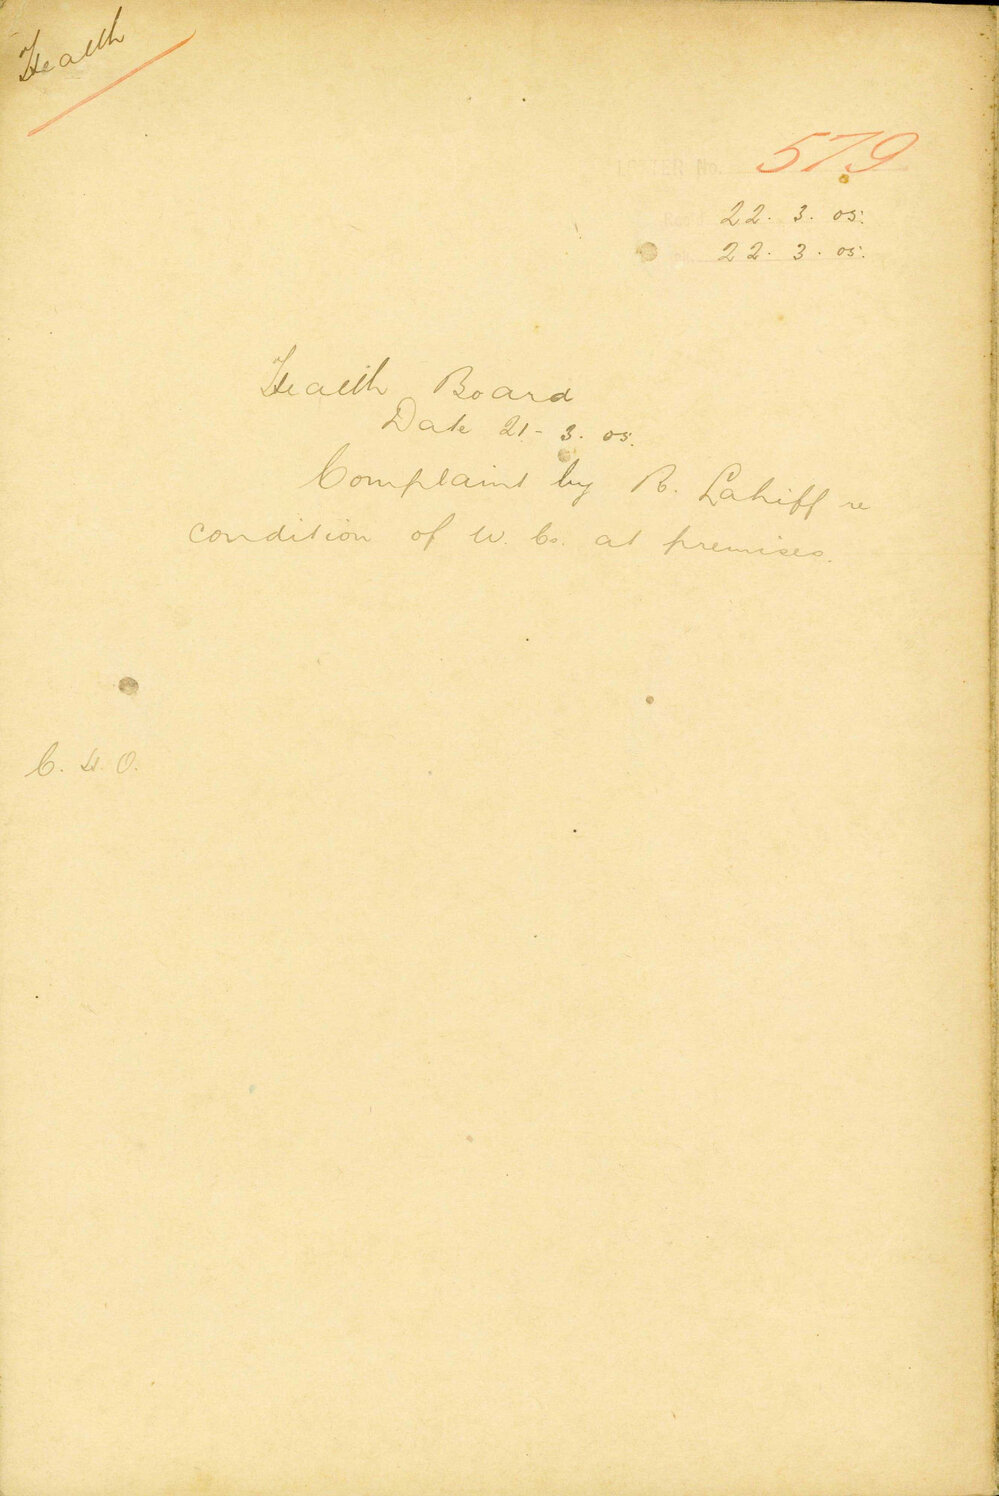 Health
LETTER No. 579
22. 3. 05.
22. 3. 05.
Health Board
Date 21-3. 05.
Complaint by R. Lahiff re
condition of W. Cs. at premises.
C. H. O.